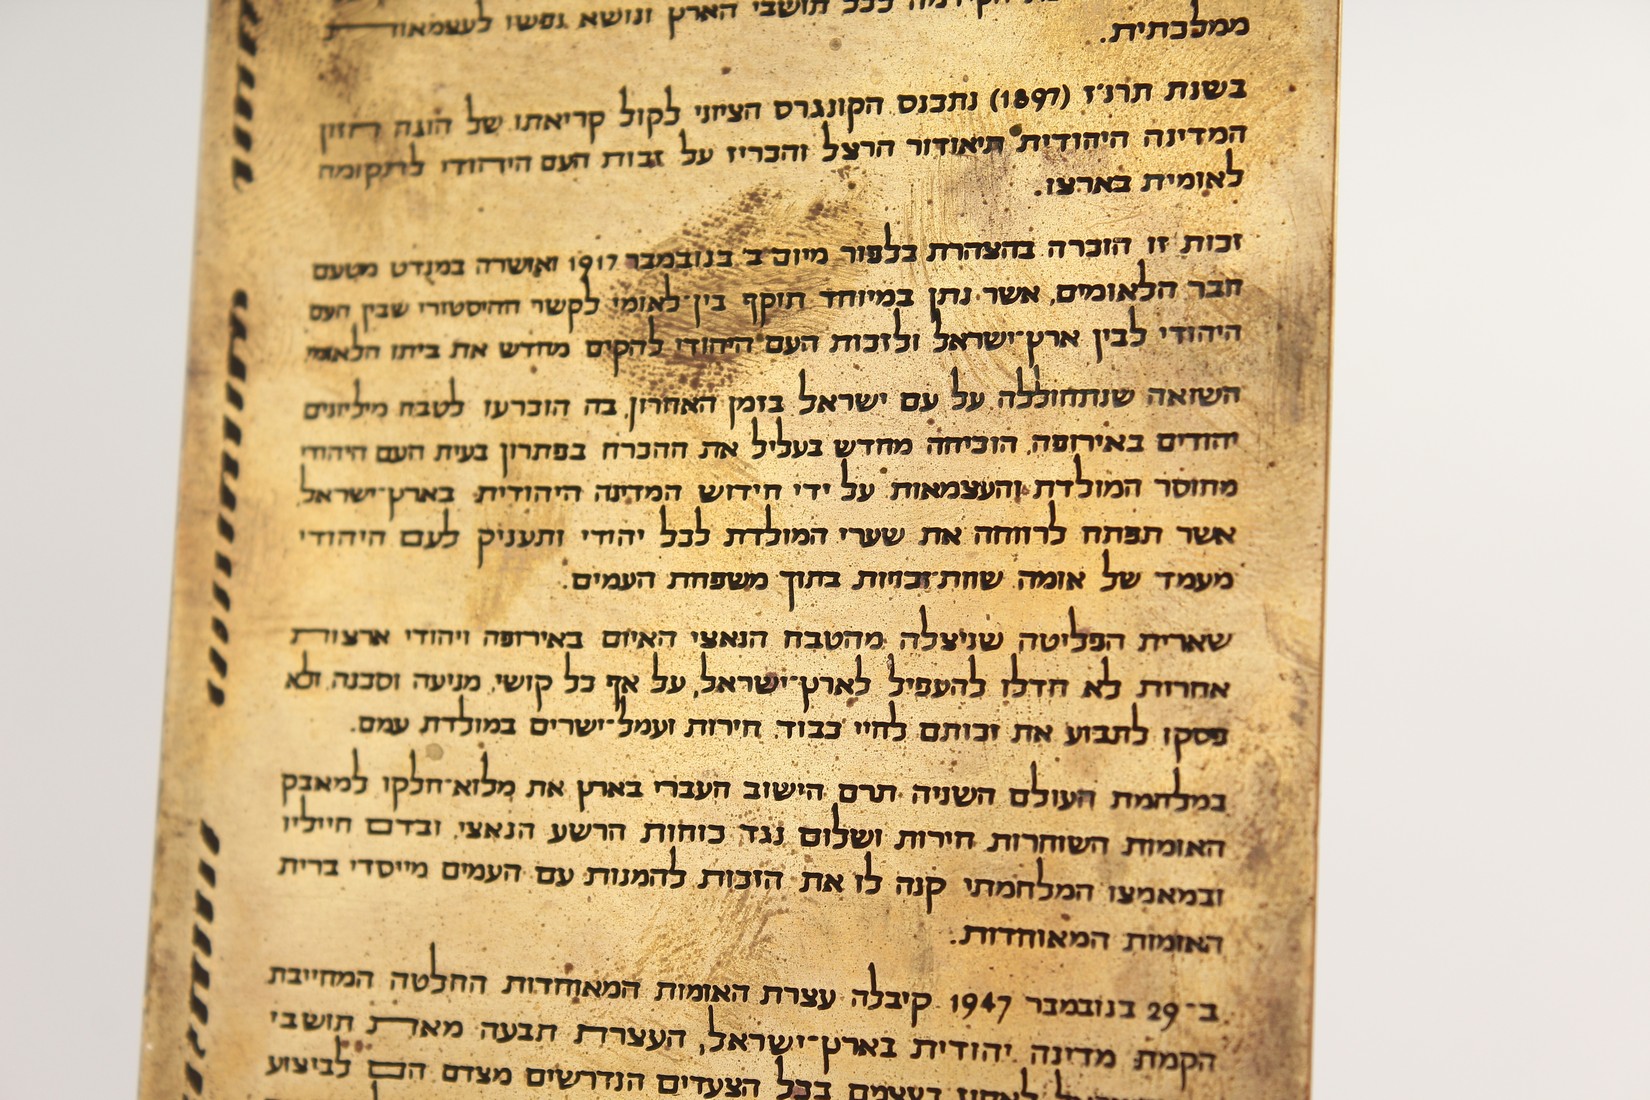 לכל תושבי הארץ ונושא נפשו לעצמאות
ממלכתית.
בשנת תרנ״ז (1897) נתכנס הקונגרס הציוני לקול קריאתו של הוגה חזון
המדינה היהודית תיאודור הרצל והכריז על זכות העם היהודי לתקומה
לאומית בארצו.
זכות זו הוכרה בהצהרת בלפור מיום ב׳ בנובמבר 1917 ואושרה במנדט מטעם
חבר הלאומים, אשר נתן במיוחד תוקף בין־לאומי לקשר ההיסטורי שבין העם
היהודי לבין ארץ־ישראל ולזכות העם היהודי להקים מחדש את ביתו הלאומי
השואה שנתחוללה על עם ישראל בזמן האחרון, בה הוכרעו לטבח מיליונים
יהודים באירופה, הוכיחה מחדש בעליל את ההכרח בפתרון בעית העם היהודי
מחוסר המולדת והעצמאות על ידי חידוש המדינה היהודית בארץ־ישראל,
אשר תפתח לרווחה את שערי המולדת לכל יהודי ותעניק לעם היהודי
מעמד של אומה שוות־זכויות בתוך משפחת העמים.
שארית הפליטה שניצלה מהטבח הנאצי האיום באירופה ויהודי ארצות
אחרות לא חדלו להעפיל לארץ־ישראל, על אף כל קושי, מניעה וסכנה, ולא
פסקו לתבוע את זכותם לחיי כבוד, חירות ועמל־ישרים במולדת עמם.
במלחמת העולם השניה תרם הישוב העברי בארץ את מלוא־חלקו למאבק
האומות השוחרות חירות ושלום נגד כוחות הרשע הנאצי, ובדם חייליו
ובמאמצו המלחמתי קנה לו את הזכות להמנות עם העמים מייסדי ברית
האומות המאוחדות.
ב־29 בנובמבר 1947 קיבלה עצרת האומות המאוחדות החלטה המחייבת
הקמת מדינה יהודית בארץ־ישראל, העצרת תבעה מאת תושבי
לאחוז בעצמם בכל הצעדים הנדרשים מצדם הם לביצוע